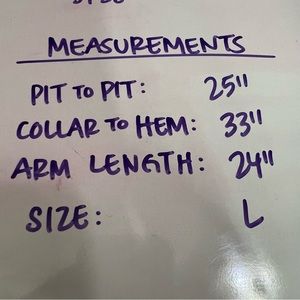 MEASUREMENTS
PIT TO PIT: 25"
COLLAR TO HEM: 33"
ARM LENGTH: 24"
SIZE: L